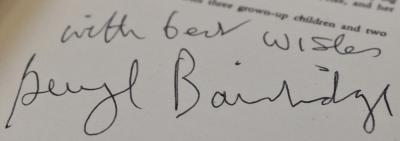 and her
three grown-up children and two
with best wishes
Beryl Bainbridge